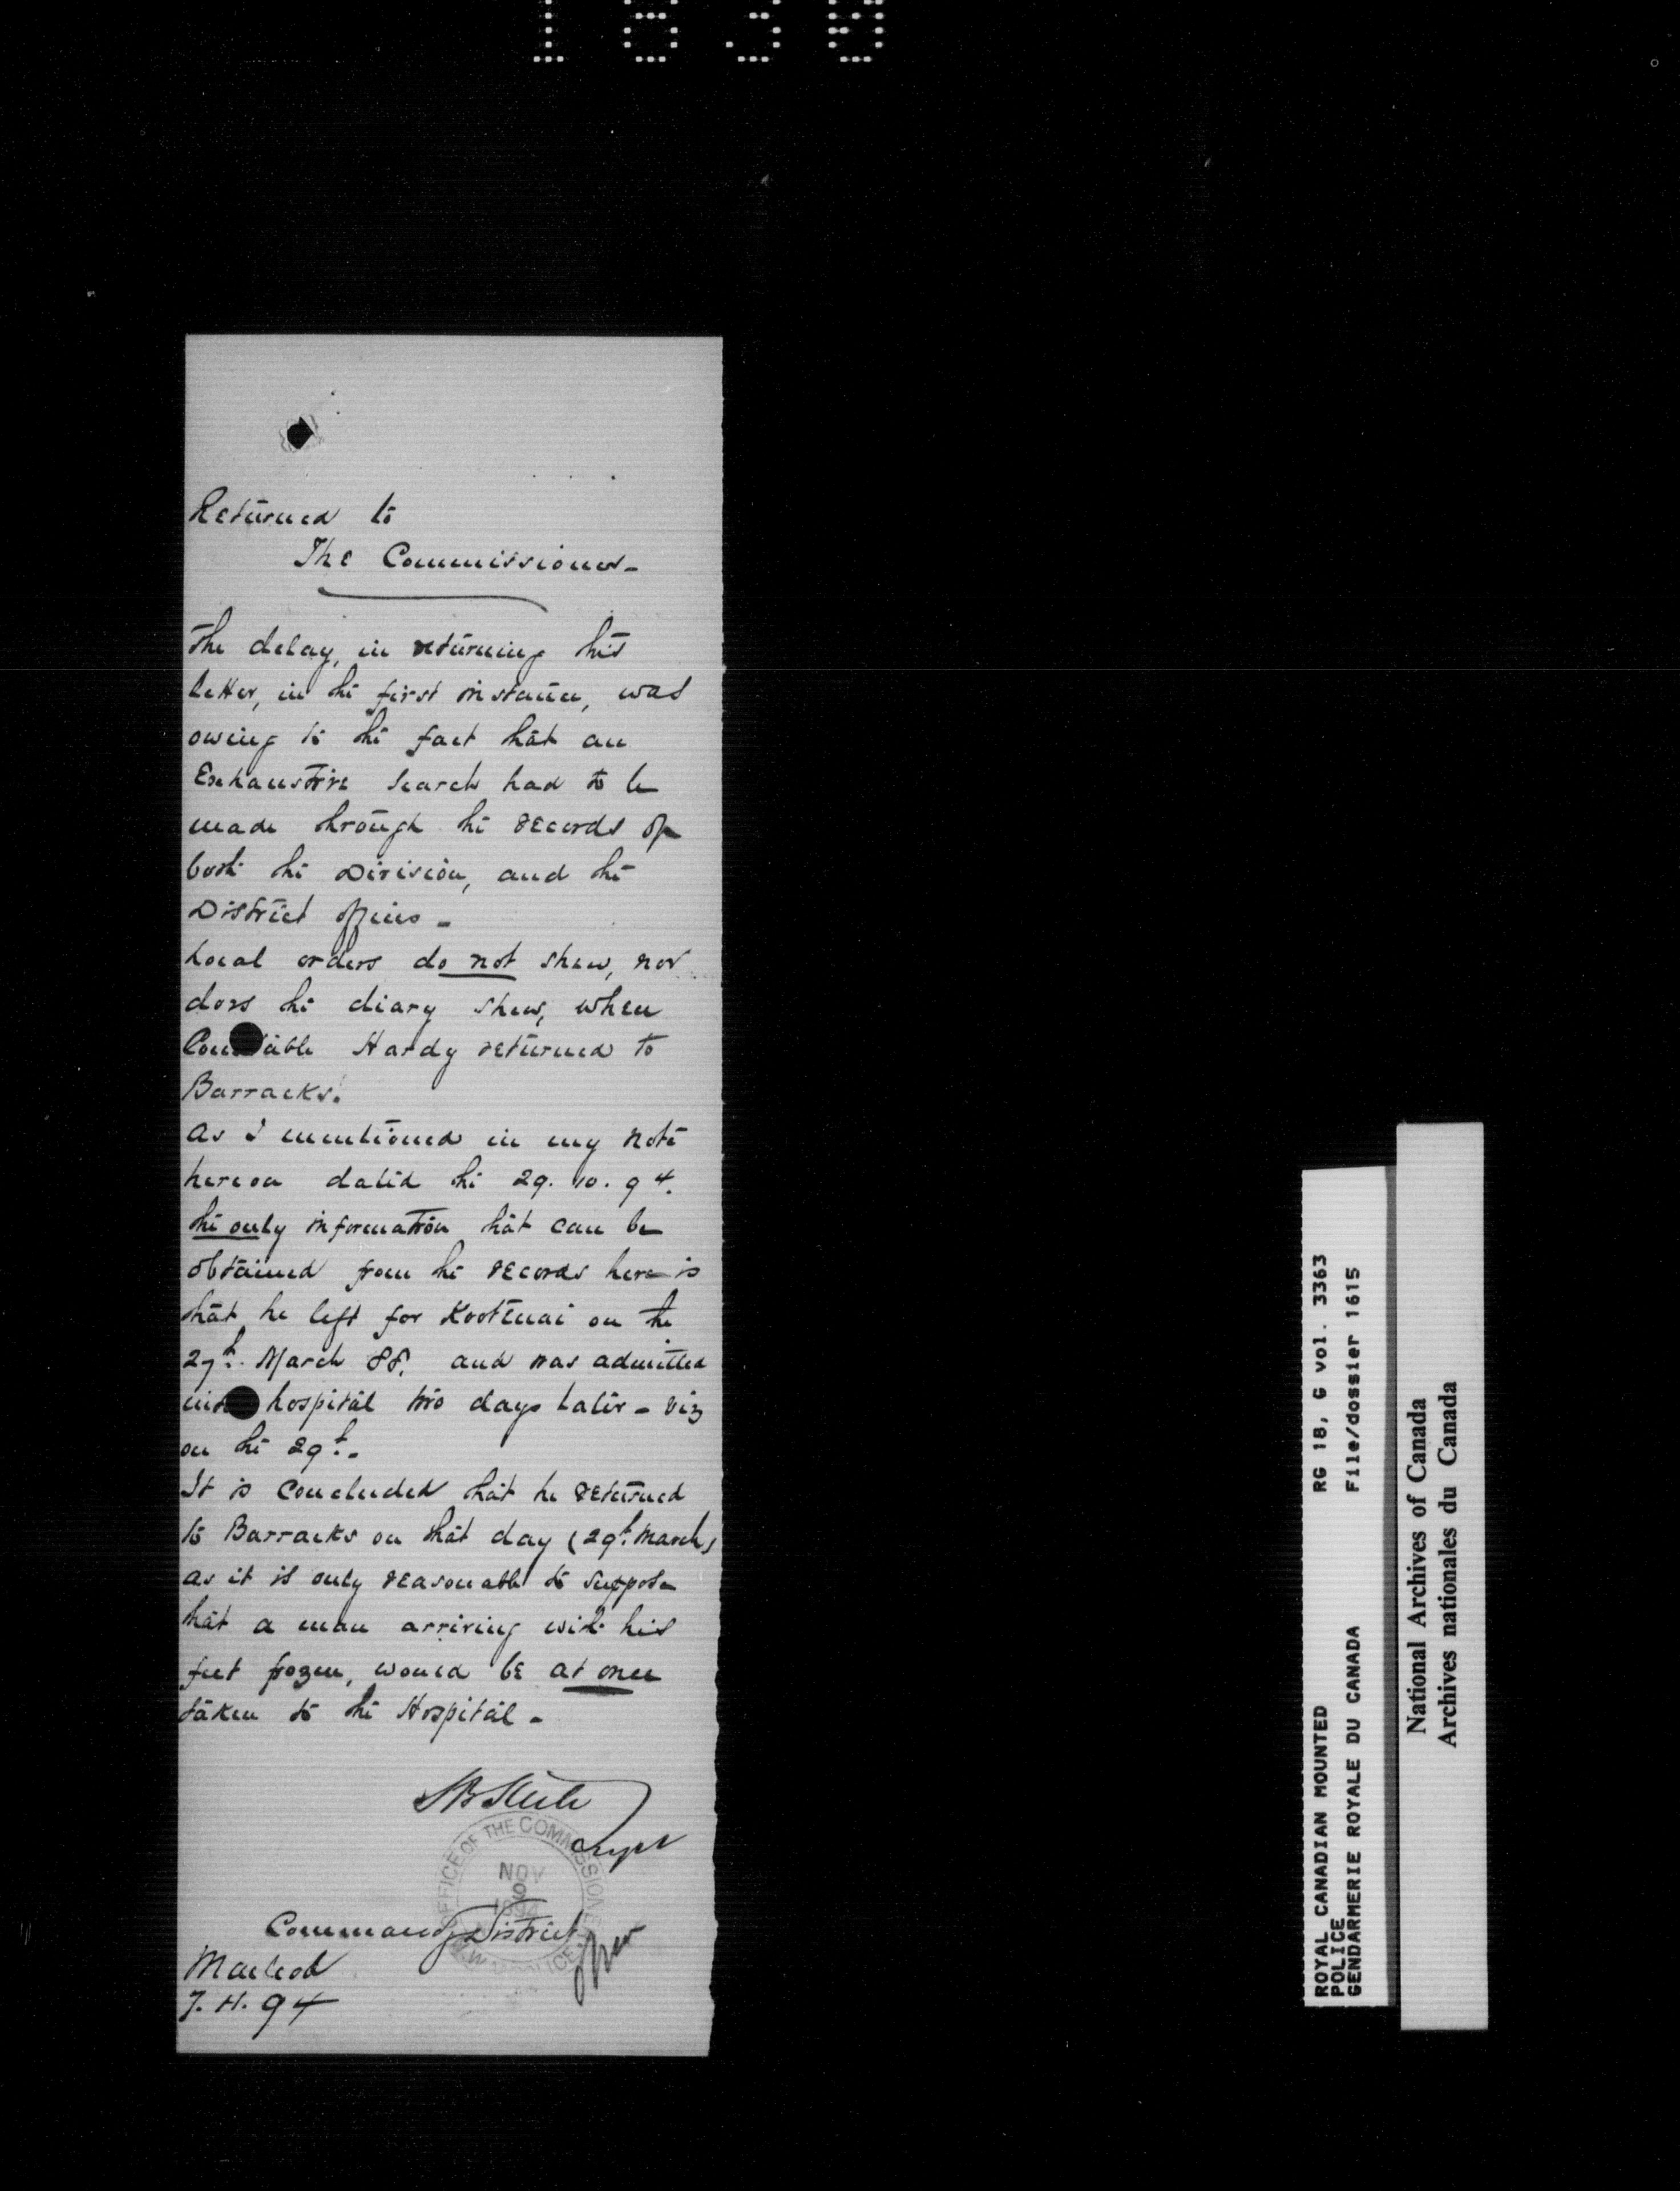 1630
Returned to
The Commissioner -
The delay, in returning this
letter, in the first instance, was
owing to the fact that an
Exhaustive search had to be
made through the records of
both the Division, and the
District offices -
Local orders do not shew, nor
does the diary shew, when
Constable Hardy returned to
Barracks.
As I mentioned in my note
hereon dated the 29. 10. 94.
the only information that can be
obtained from the records here is
that he left for Kootenai on the
27th March 88. and was admitted
into hospital two days later - viz
on the 29th -
It is concluded that he returned
to Barracks on that day (29th March)
as it is only reasonable to suppose
that a man arriving with his
feet frozen, would be at once
taken to the Hospital -
SB Steele
Supt
OFFICE OF THE COMMISSIONER
NOV
9
1894
N.W.M. POLICE
Commandg District
Macleod
7. 11. 94
ROYAL CANADIAN MOUNTED RG 18, G vol. 3363
POLICE
GENDARMERIE ROYALE DU CANADA File/dossier 1615
National Archives of Canada
Archives nationales du Canada